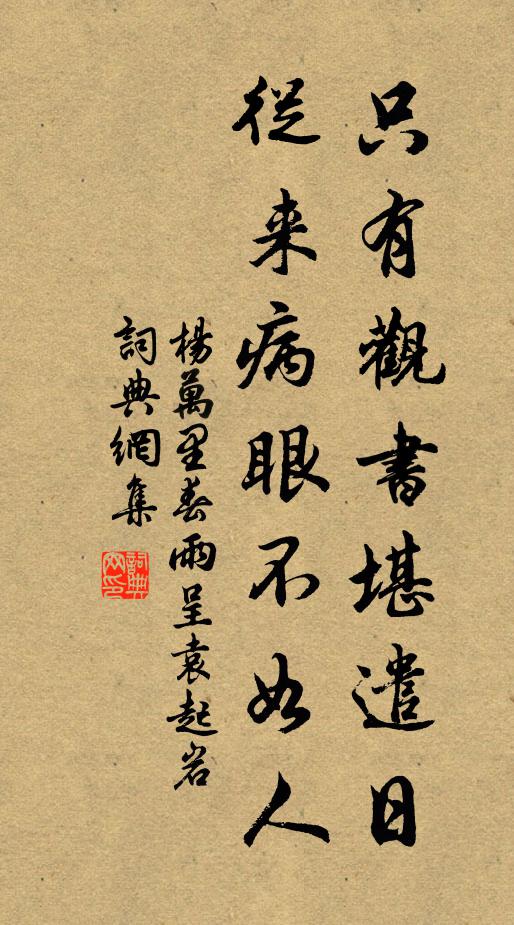 只有觀書堪遣日
從来病眼不如人
楊萬里春雨呈袁起岩
詞典網集
詞典網印